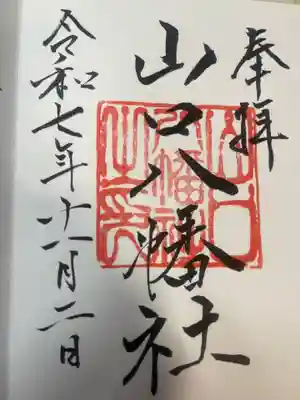 奉拝
山口八幡社
令和七年十一月二日
山口
八幡社
之印